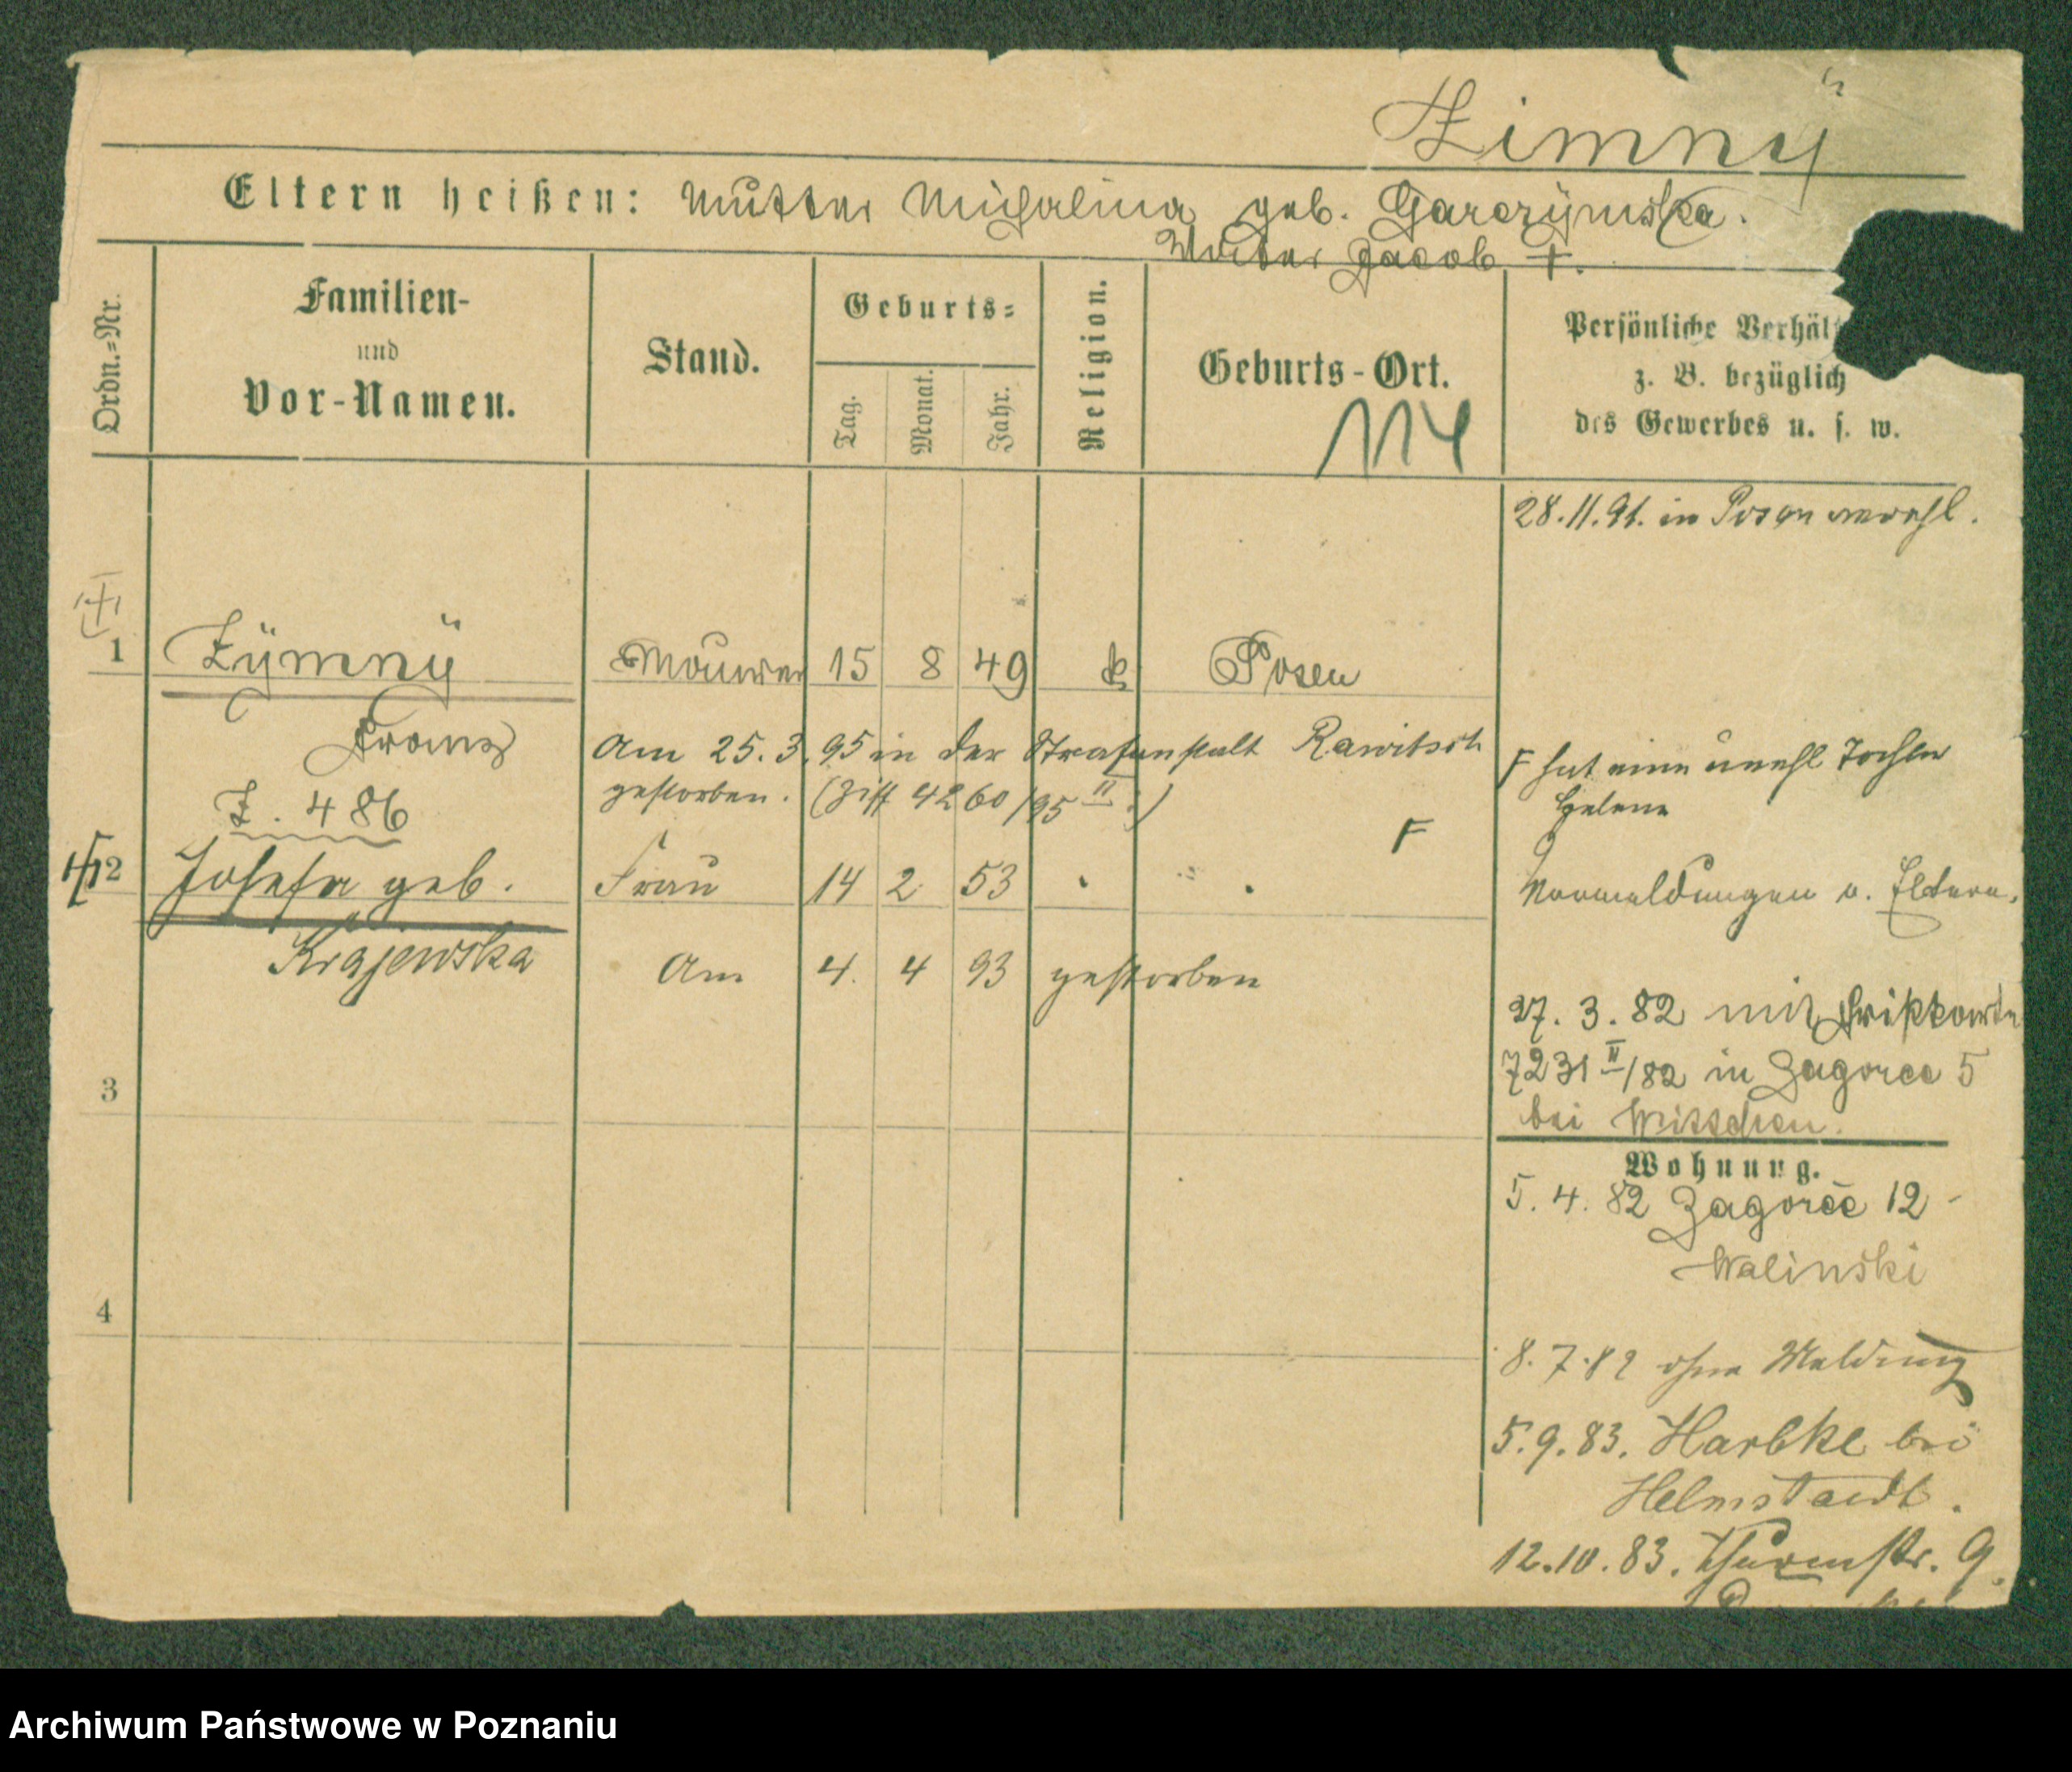 Zimny
Eltern heißen: Mutter Michalina geb. Garczynska.
Vater Jacob †.
Ordn.-Nr.
Familien-
und
Vor-Namen.
Stand.
Geburts-
Tag.
Monat.
Jahr.
Religion.
Geburts-Ort.
114
Persönliche Verhäl
z. B. bezüglich
des Gewerbes u. s. w.
28.11.91. in Posen
1 Zÿmnÿ Maurer 15 8 49 k Posen
Franz
Am 25.3.95 in der Strafanstalt Rawitsch
gestorben. (Ziff 4260/95 II.)
Z. 486
F hat eine unehl Tochter
Helene
F
2 Josefa geb. Frau 14 2 53
Krajewska
Am 4. 4 93 gestorben
Vormeldungen v. Eltern.
27. 3. 82 mit
7231 II/82 in Zagorce 5
bei Mittschen.
Wohnung.
5. 4. 82 Zagorce 12 -
Walinski
8. 7. 82 ohne Meldung
5. 9. 83. Harbke bei
Helmstaedt.
12.10.83. Thurmstr. 9.
3
4
Archiwum Państwowe w Poznaniu